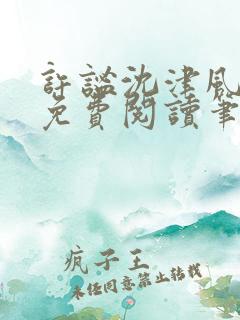 許謐沈津風
免費閱讀筆
疯子王
未经同意禁止转载